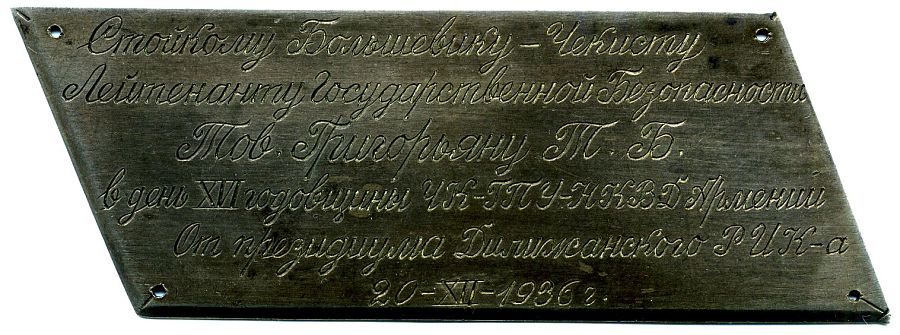 Стойкому Большевику – Чекисту
Лейтенанту Государственной Безопасности
Тов. Григорьяну Т. Б.
в день XVI годовщины ЧК-ГПУ-НКВД Армении
От президиума Дилижанского РИК-а
20-XII-1936 г.